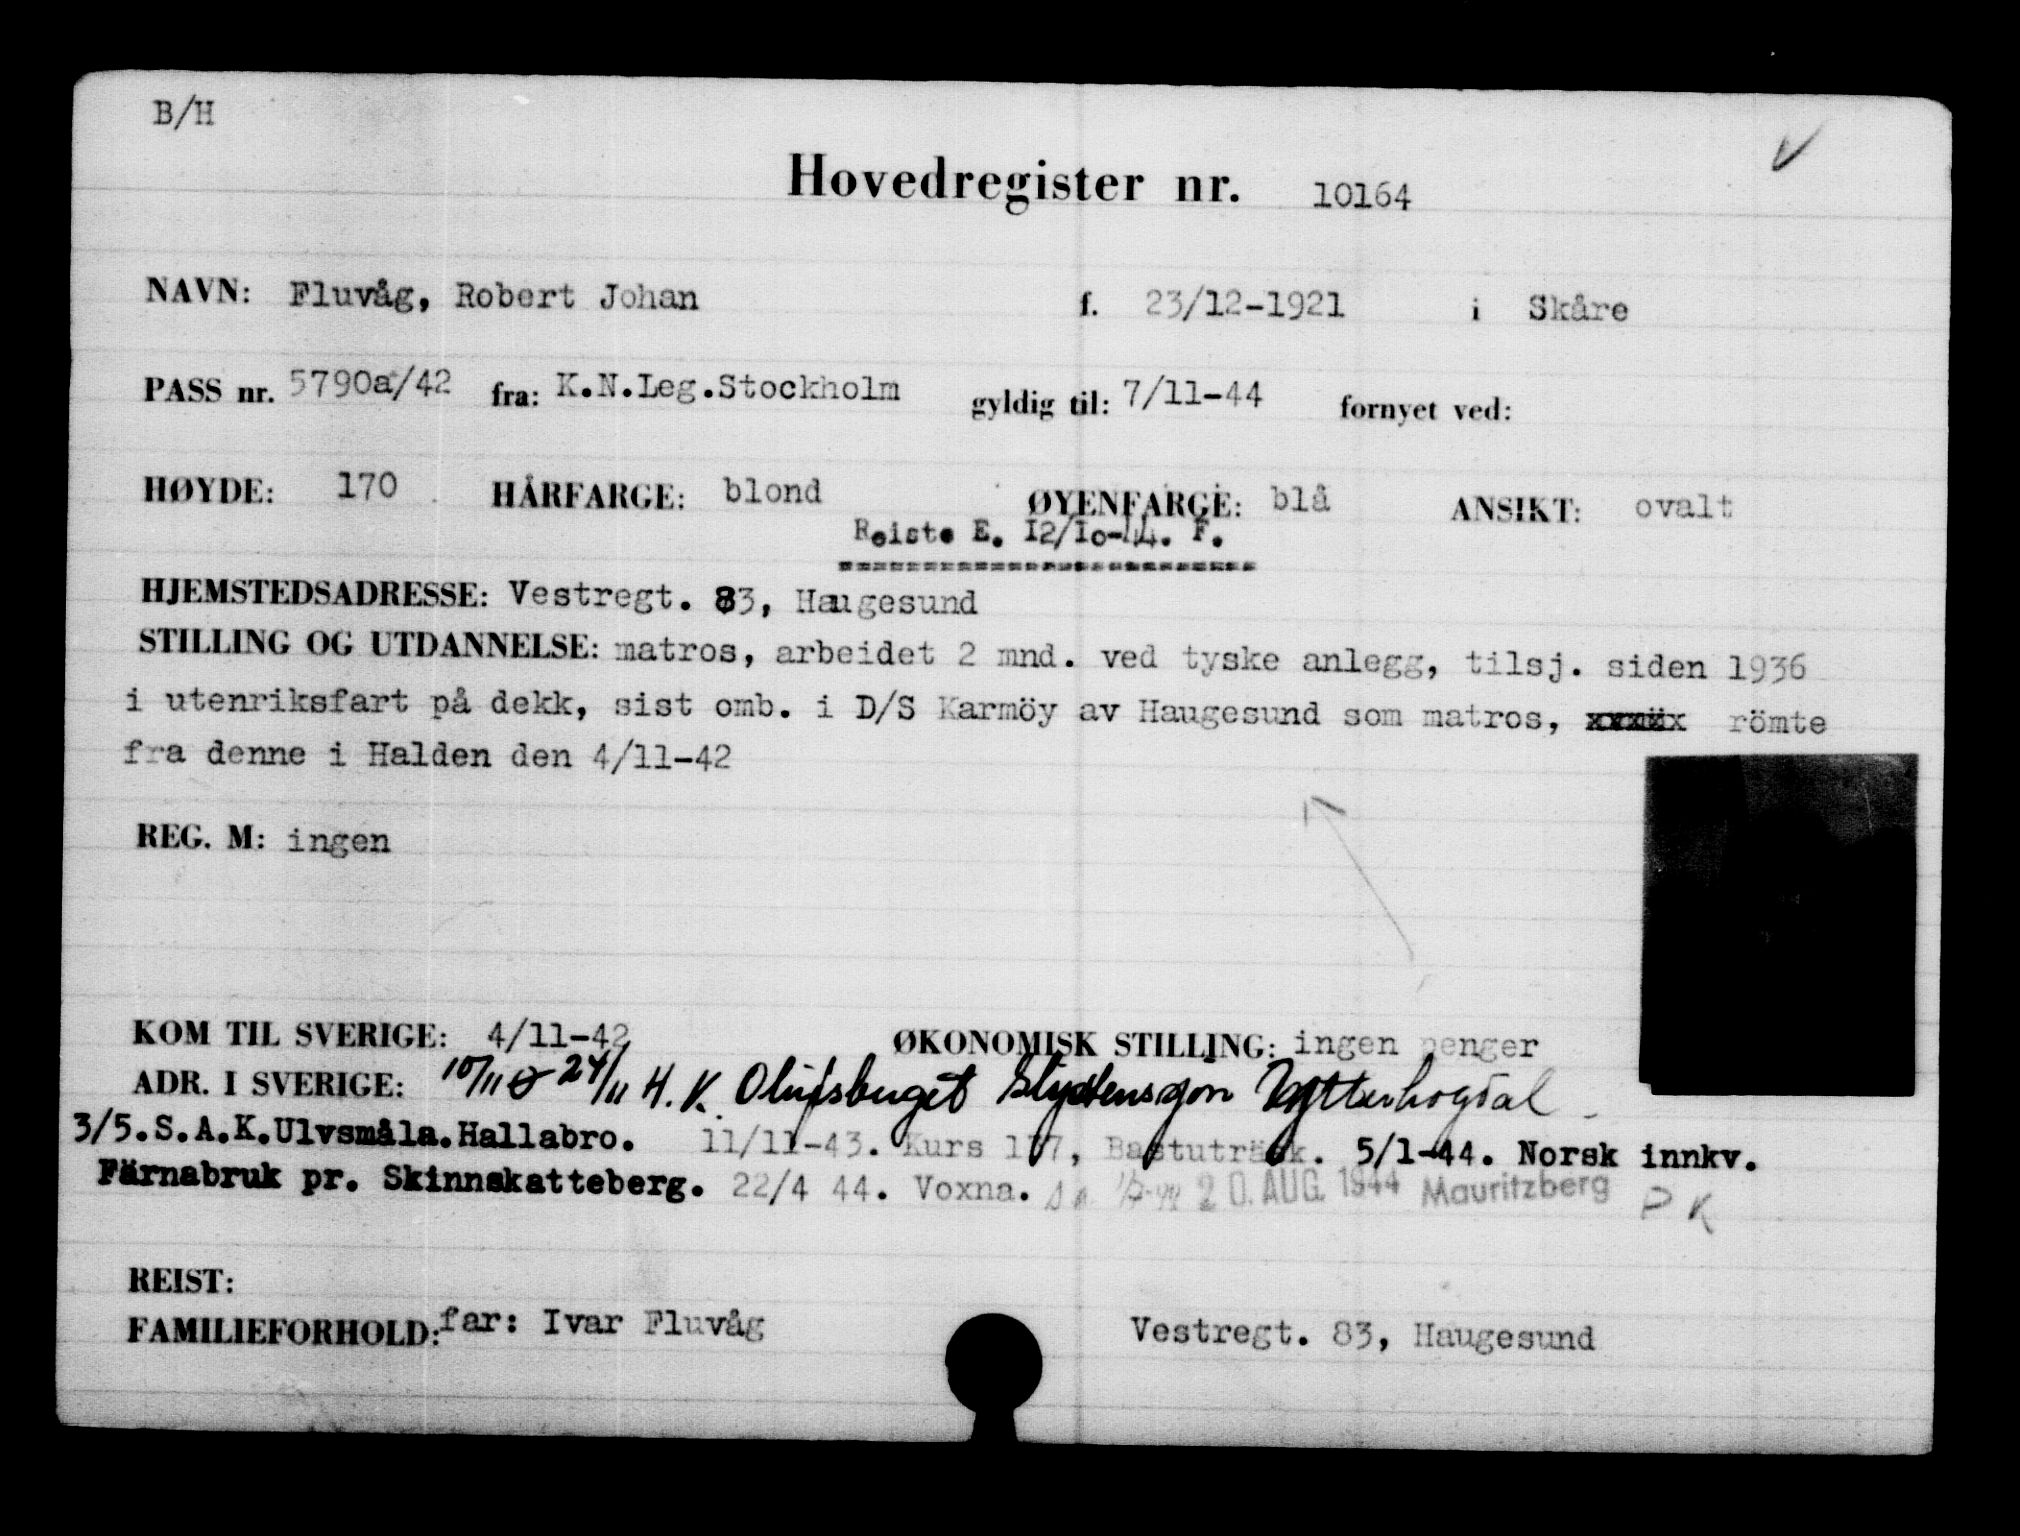 B/H
Hovedregister nr. 10164
NAVN: Fluvåg, Robert Johan f. 23/12-1921 i Skåre
PASS nr. 5790a/42 fra: K.N.Leg.Stockholm gyldig til: 7/11-44 fornyet ved:
HØYDE: 170 HÅRFARGE: blond ØYENFARGE: blå ANSIKT: ovalt
Reiste E. 12/10-44. F.
HJEMSTEDSADRESSE: Vestregt. 83, Haugesund
STILLING OG UTDANNELSE: matros, arbeidet 2 mnd. ved tyske anlegg, tilsj. siden 1936
i utenriksfart på dekk, sist omb. i D/S Karmöy av Haugesund som matros, römte
fra denne i Halden den 4/11-42
REG. M: ingen
KOM TIL SVERIGE: 4/11-42 ØKONOMISK STILLING: ingen penger
ADR. I SVERIGE: 10/11 24/11 H.K. Ytterhogdal
3/5.S.A.K.Ulvsmåla.Hallabro. 11/11-43. Kurs 137, Bastuträsk. 5/1-44. Norsk innkv.
Färnabruk pr. Skinnskatteberg. 22/4 44. Voxna. 20. AUG. 1944 Mauritzberg PK
REIST:
FAMILIEFORHOLD: far: Ivar Fluvåg Vestregt. 83, Haugesund